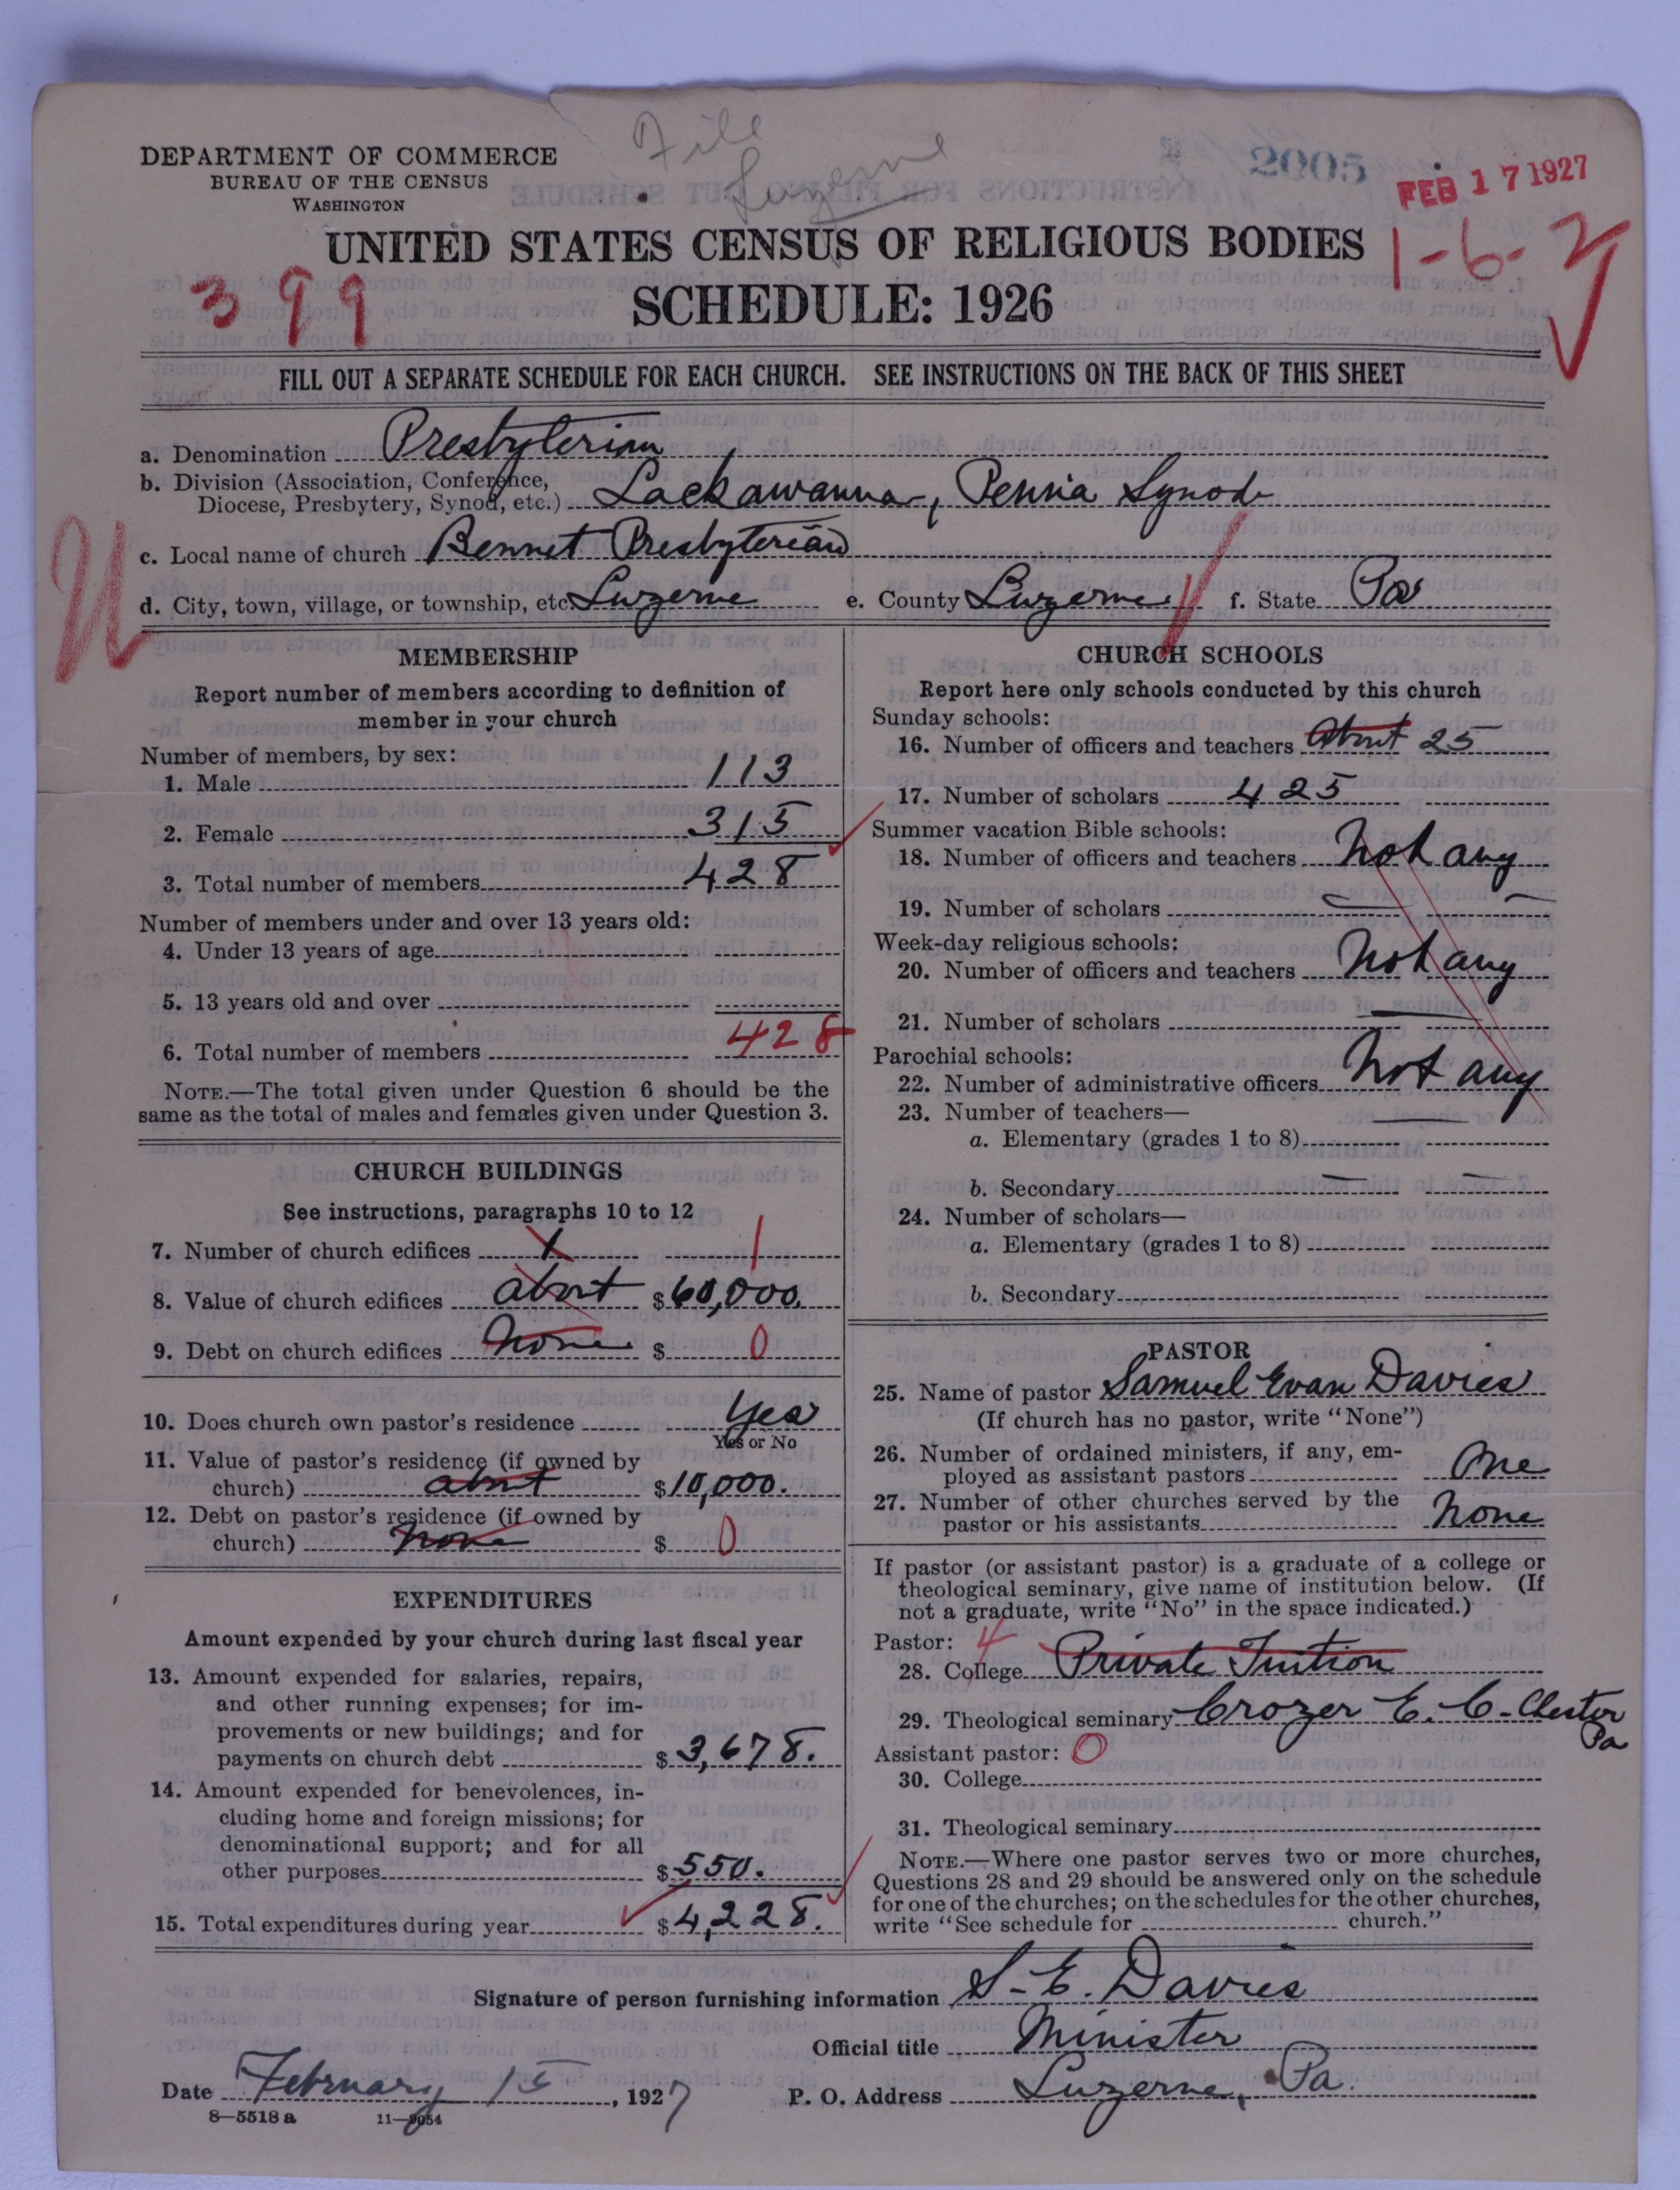 File
Luzerne
2005
FEB 17 1927
DEPARTMENT OF COMMERCE
BUREAU OF THE CENSUS
WASHINGTON
UNITED STATES CENSUS OF RELIGIOUS BODIES
1-6-2
399
SCHEDULE: 1926
FILL OUT A SEPARATE SCHEDULE FOR EACH CHURCH. SEE INSTRUCTIONS ON THE BACK OF THIS SHEET
a. Denomination Presbyterian
b. Division (Association, Conference,
Diocese, Presbytery, Synod, etc.) Lackawanna, Penna Synod
c. Local name of church Bennet Presbyterian
d. City, town, village, or township, etc. Luzerne e. County Luzerne f. State Pa
MEMBERSHIP
Report number of members according to definition of
member in your church
Number of members, by sex:
1. Male 113
2. Female 315
3. Total number of members 428
Number of members under and over 13 years old:
4. Under 13 years of age
5. 13 years old and over
6. Total number of members 428
NOTE.—The total given under Question 6 should be the
same as the total of males and females given under Question 3.
CHURCH BUILDINGS
See instructions, paragraphs 10 to 12
7. Number of church edifices 1 1
8. Value of church edifices about $60,000.
9. Debt on church edifices None $ 0
10. Does church own pastor's residence Yes
Yes or No
11. Value of pastor's residence (if owned by
church) about $10,000.
12. Debt on pastor's residence (if owned by
church) None $ 0
EXPENDITURES
Amount expended by your church during last fiscal year
13. Amount expended for salaries, repairs,
and other running expenses; for im-
provements or new buildings; and for
payments on church debt $3,678.
14. Amount expended for benevolences, in-
cluding home and foreign missions; for
denominational support; and for all
other purposes $550.
15. Total expenditures during year $4,228.
CHURCH SCHOOLS
Report here only schools conducted by this church
Sunday schools:
16. Number of officers and teachers About 25
17. Number of scholars 425
Summer vacation Bible schools:
18. Number of officers and teachers Not any
19. Number of scholars
Week-day religious schools:
20. Number of officers and teachers Not any
21. Number of scholars
Parochial schools:
22. Number of administrative officers Not any
23. Number of teachers—
a. Elementary (grades 1 to 8)
b. Secondary
24. Number of scholars—
a. Elementary (grades 1 to 8)
b. Secondary
PASTOR
25. Name of pastor Samuel Evan Davies
(If church has no pastor, write "None")
26. Number of ordained ministers, if any, em-
ployed as assistant pastors One
27. Number of other churches served by the
pastor or his assistants None
If pastor (or assistant pastor) is a graduate of a college or
theological seminary, give name of institution below. (If
not a graduate, write "No" in the space indicated.)
Pastor: 4
28. College Private Tuition
29. Theological seminary Crozer E. C. Chester
Pa
Assistant pastor: 0
30. College
31. Theological seminary
NOTE.—Where one pastor serves two or more churches,
Questions 28 and 29 should be answered only on the schedule
for one of the churches; on the schedules for the other churches,
write "See schedule for church."
Signature of person furnishing information S. E. Davies
Official title Minister
Date February 15, 1927 P. O. Address Luzerne, Pa.
8—5518 a 11—9054